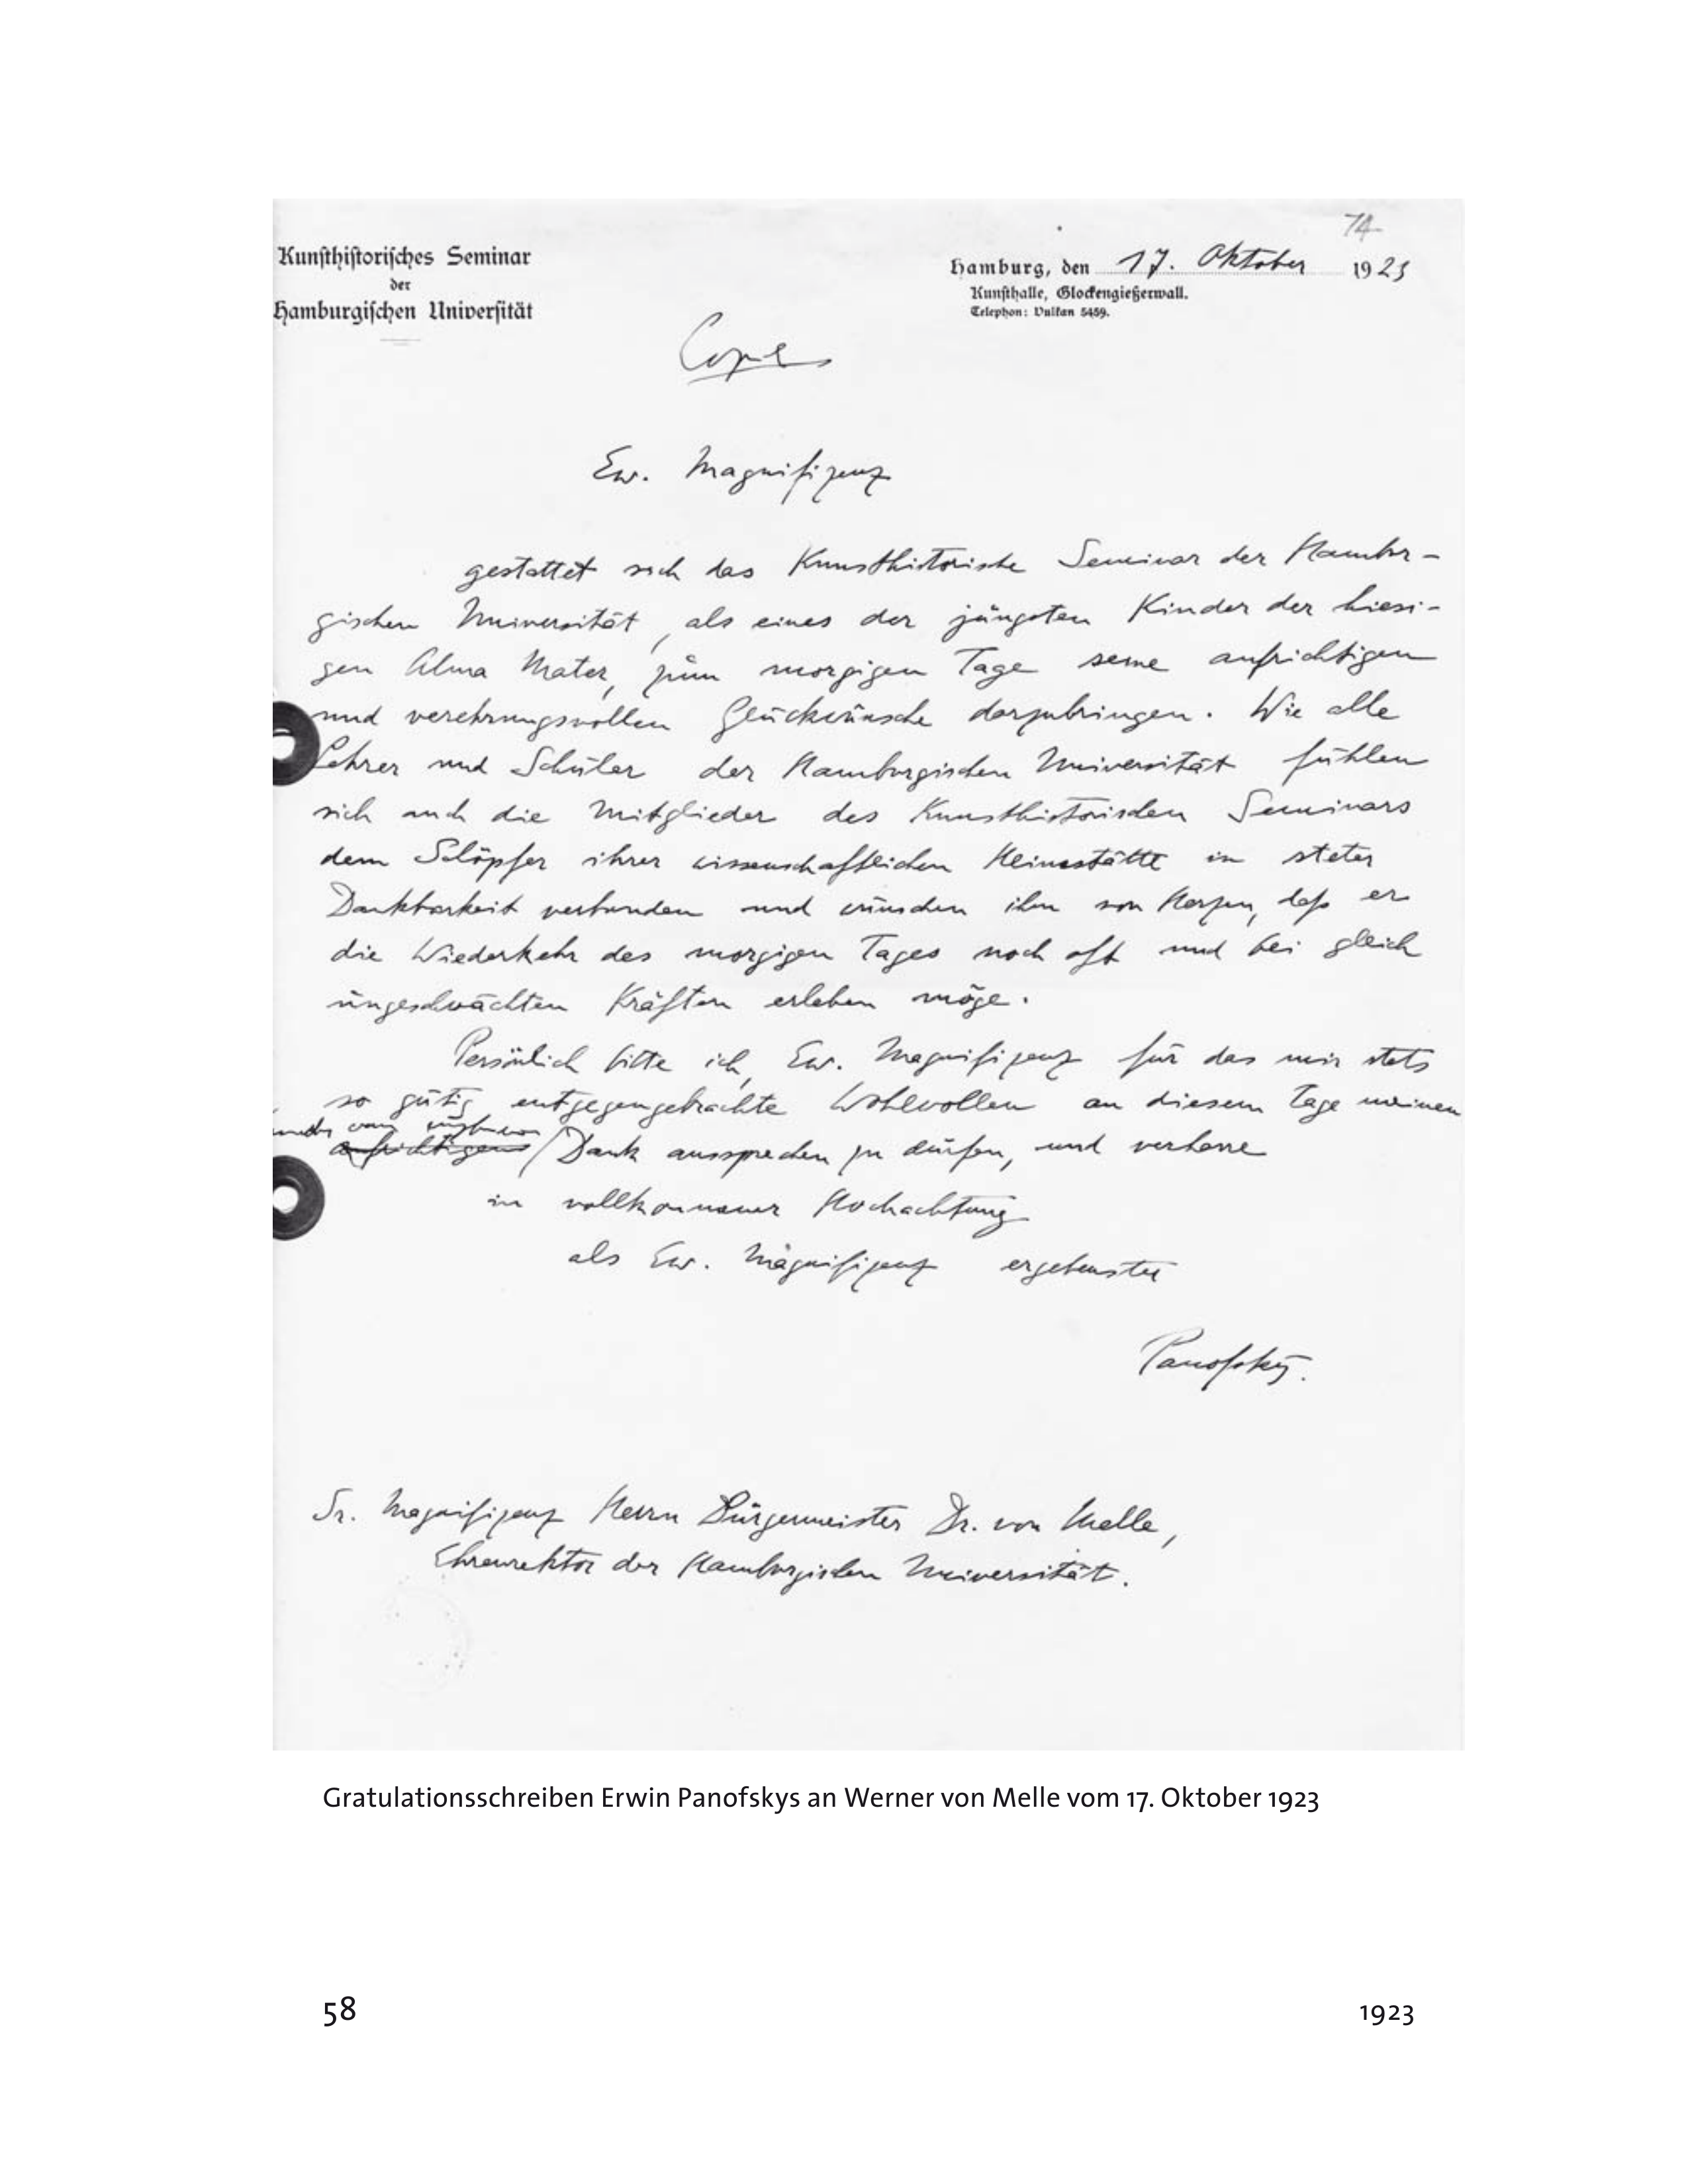 74
Kunsthistorisches Seminar
der
Hamburgischen Universität
Hamburg, den 17. Oktober 1923
Kunsthalle, Glockengießerwall.
Telephon: Vulkan 5459.
Ew. Magnifizenz
gestattet sich das Kunsthistorische Seminar der Hambur-
gischen Universität, als eines der jüngsten Kinder der hiesi-
gen Alma Mater, zum morgigen Tage seine aufrichtigen
und verehrungsvollen Glückwünsche darzubringen. Wie alle
Lehrer und Schüler der Hamburgischen Universität fühlen
sich auch die Mitglieder des Kunsthistorischen Seminars
dem Schöpfer ihrer wissenschaftlichen Heimstätte in steter
Dankbarkeit verbunden und wünschen ihm von Herzen, daß er
die Wiederkehr des morgigen Tages noch oft und bei gleich
ungeschwächten Kräften erleben möge.
Persönlich bitte ich, Ew. Magnifizenz für das mir stets
so gütig entgegengebrachte Wohlwollen an diesem Tage meinen
aufrichtigen Dank aussprechen zu dürfen, und verharre
in vollkommener Hochachtung
als Ew. Magnifizenz ergebenster
Panofsky.
Sr. Magnifizenz Herrn Bürgermeister Dr. von Melle,
Ehrenrektor der Hamburgischen Universität.
Gratulationsschreiben Erwin Panofskys an Werner von Melle vom 17. Oktober 1923
58
1923